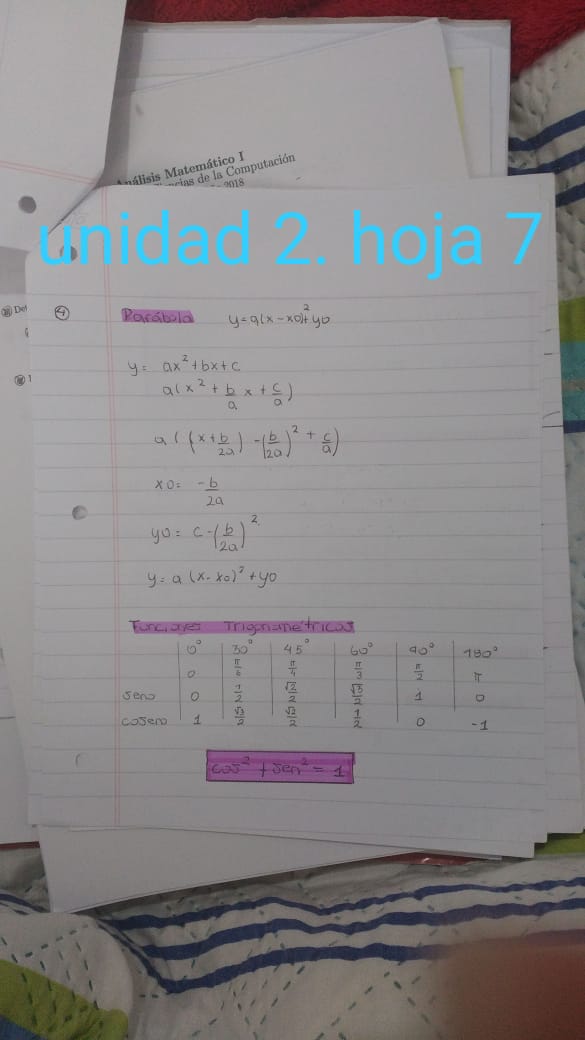 Análisis Matemático I
Ciencias de la Computación
2018
unidad 2. hoja 7
④ Parábola y=a(x-x0)²+y0
y= ax²+bx+c
a(x² + b/a x + c/a)
a((x+b/2a) -(b/2a)² + c/a)
x0= -b/2a
y0= c-(b/2a)²
y= a(x-x0)²+y0
Funciones Trigonometricas
0° 30° 45° 60° 90° 180°
0 π/6 π/4 π/3 π/2 π
seno 0 1/2 √2/2 √3/2 1 0
coseno 1 √3/2 √2/2 1/2 0 -1
cos² + sen² = 1